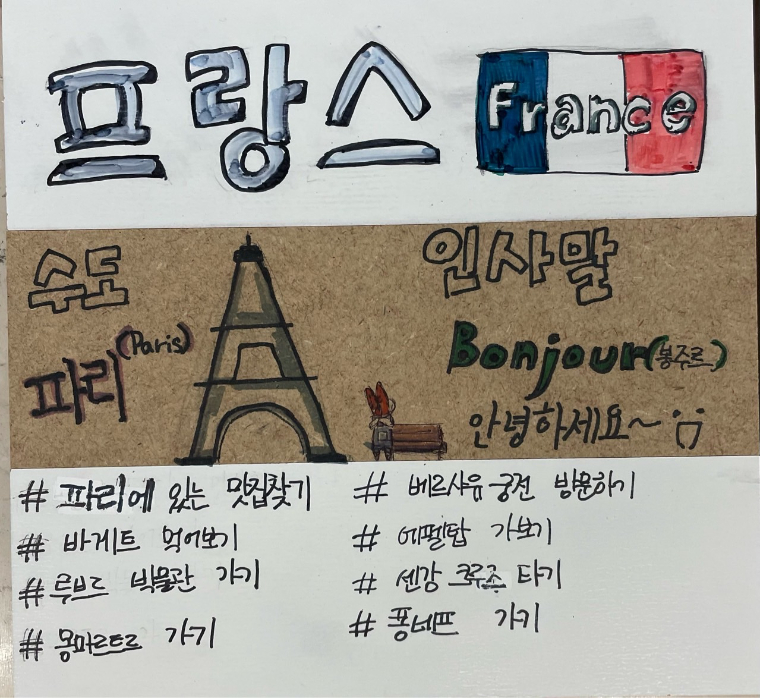 프랑스 France
수도
파리 (Paris)
인사말
Bonjour (봉주르)
안녕하세요~
# 파리에 있는 맛집찾기
# 바게트 먹어보기
# 루브르 박물관 가기
# 몽마르트르 가기
# 베르사유 궁전 방문하기
# 에펠탑 가보기
# 센강 크루즈 타기
# 퐁네프 가기